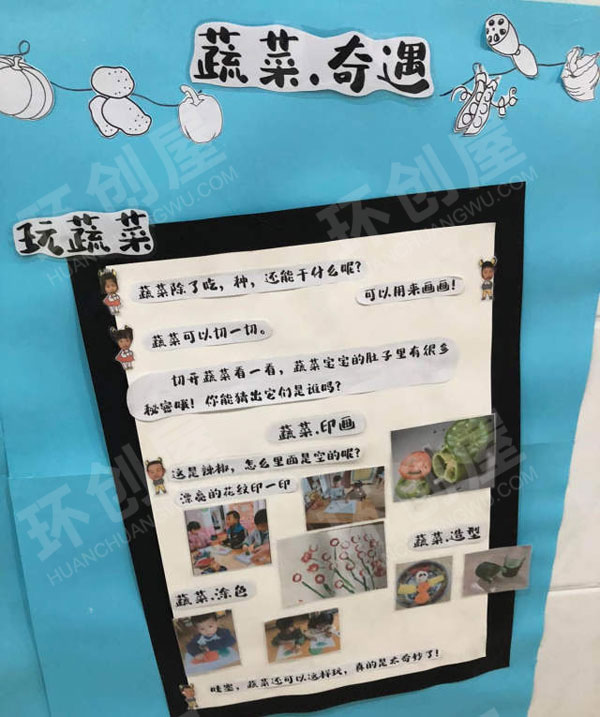 蔬菜.奇遇
玩蔬菜
蔬菜除了吃，种，还能干什么呢？
可以用来画画！
蔬菜可以切一切。
切开蔬菜看一看，蔬菜宝宝的肚子里有很多
秘密哦！你能猜出它们是谁吗？
蔬菜.印画
这是辣椒，怎么里面是空的呢？
漂亮的花纹印一印
蔬菜.造型
蔬菜.涂色
哇塞，蔬菜还可以这样玩，真的是太奇妙了！
环创屋
HUANCHUANGWU.COM
环创屋
HUANCHUANGWU.COM
环创屋
HUANCHUANGWU.COM
环创屋
HUANCHUANGWU.COM